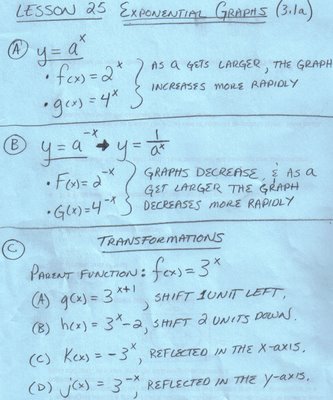 LESSON 25 EXPONENTIAL GRAPHS (3.1a)
(A) y = a^x
• f(x) = 2^x } AS a GETS LARGER, THE GRAPH
• g(x) = 4^x } INCREASES MORE RAPIDLY
(B) y = a^-x → y = 1/a^x
• F(x) = 2^-x } GRAPHS DECREASE, & AS a
GET LARGER THE GRAPH
• G(x) = 4^-x } DECREASES MORE RAPIDLY
(C) TRANSFORMATIONS
PARENT FUNCTION: f(x) = 3^x
(A) g(x) = 3^x+1, SHIFT 1 UNIT LEFT.
(B) h(x) = 3^x - 2, SHIFT 2 UNITS DOWN.
(C) K(x) = -3^x, REFLECTED IN THE X-AXIS.
(D) j(x) = 3^-x, REFLECTED IN THE y-AXIS.